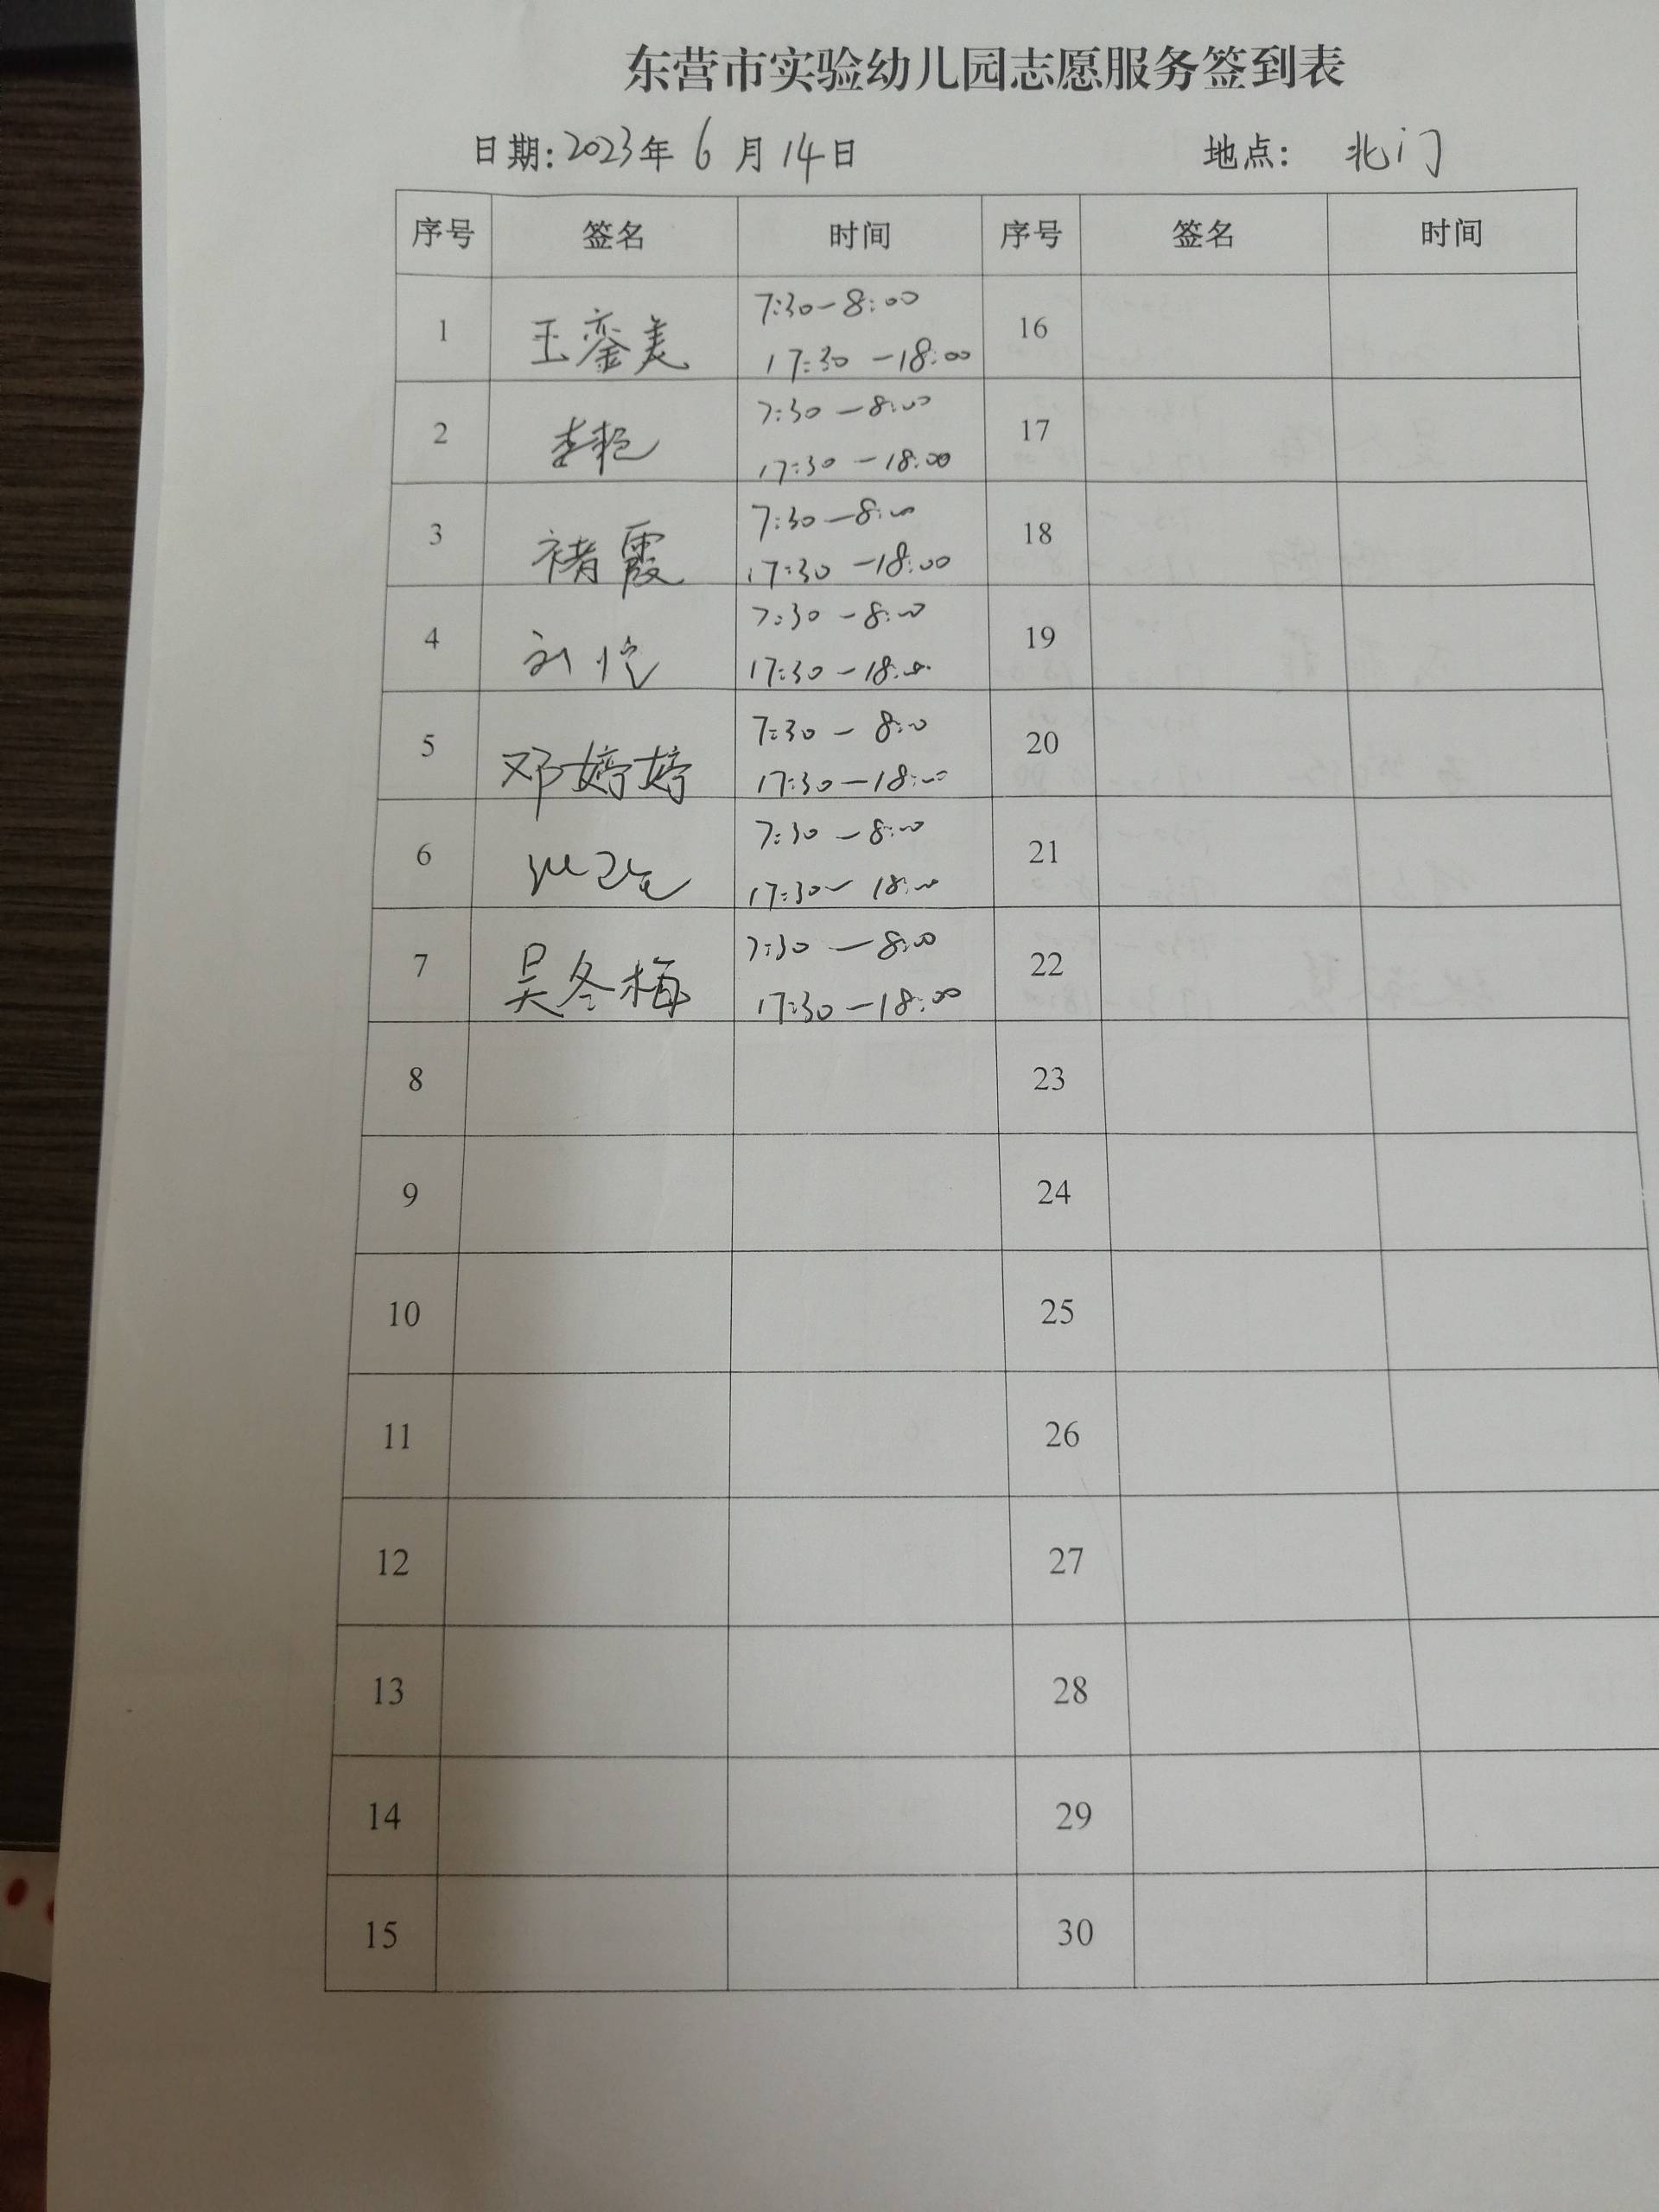 东营市实验幼儿园志愿服务签到表
日期:2023年6月14日 地点: 北门
序号 签名 时间 序号 签名 时间
1 王銮美 7:30-8:00 16
17:30-18:00
2 李艳 7:30-8:00 17
17:30-18:00
3 褚霞 7:30-8:00 18
17:30-18:00
4 刘 7:30-8:00 19
17:30-18:00
5 邓婷婷 7:30-8:00 20
17:30-18:00
6 7:30-8:00 21
17:30-18:00
7 吴冬梅 7:30-8:00 22
17:30-18:00
8 23
9 24
10 25
11 26
12 27
13 28
14 29
15 30